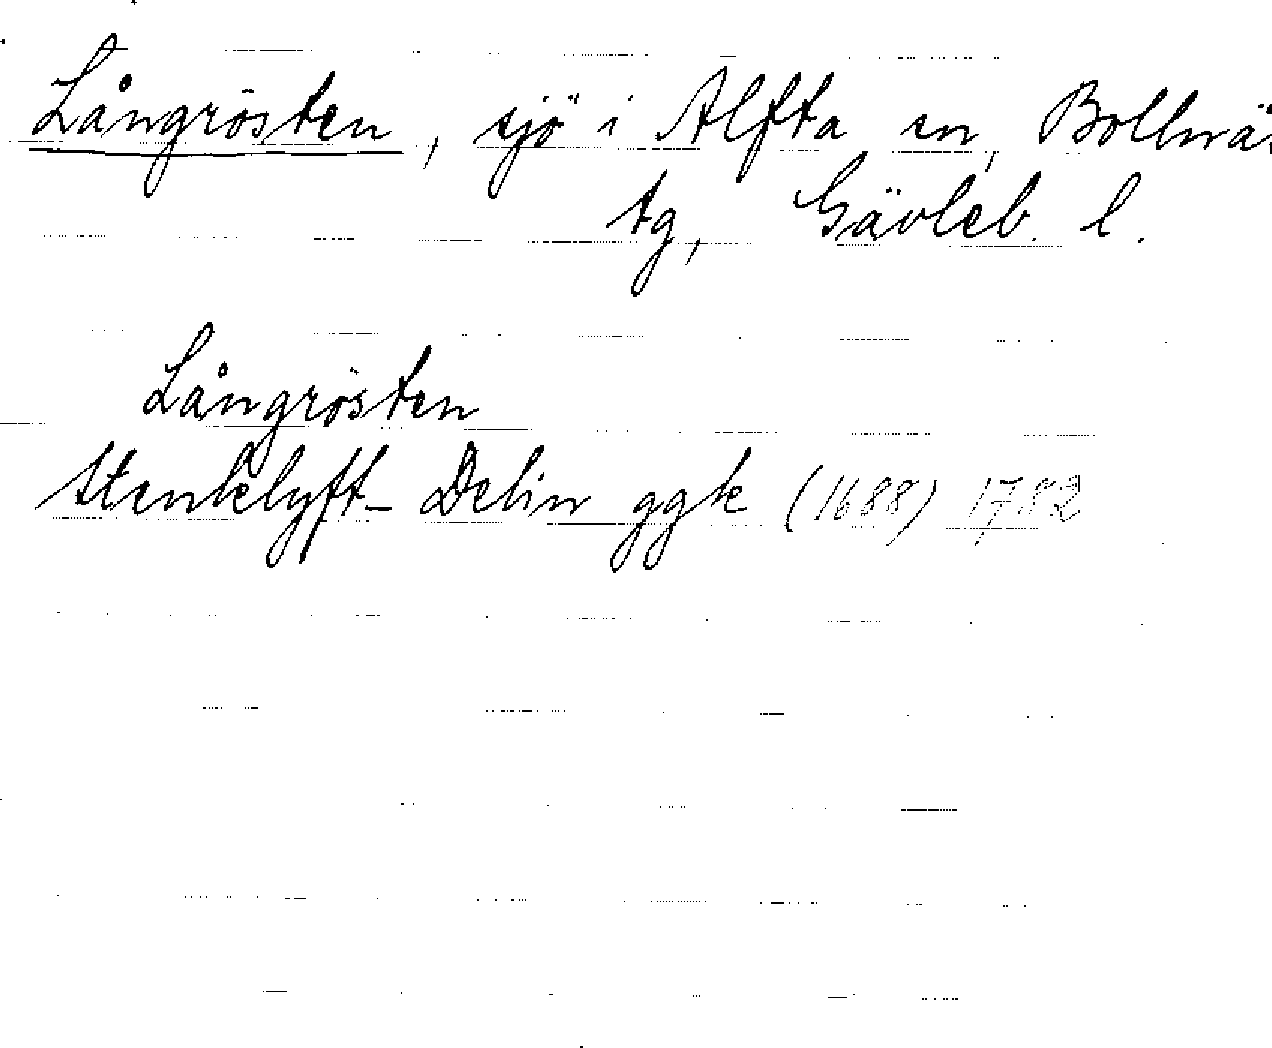 Långrösten, sjö i Alfta sn, Bollnäs
tg, Gävleb. l.
Långrösten
Stenklyft- Delin ggk (1688) 1782